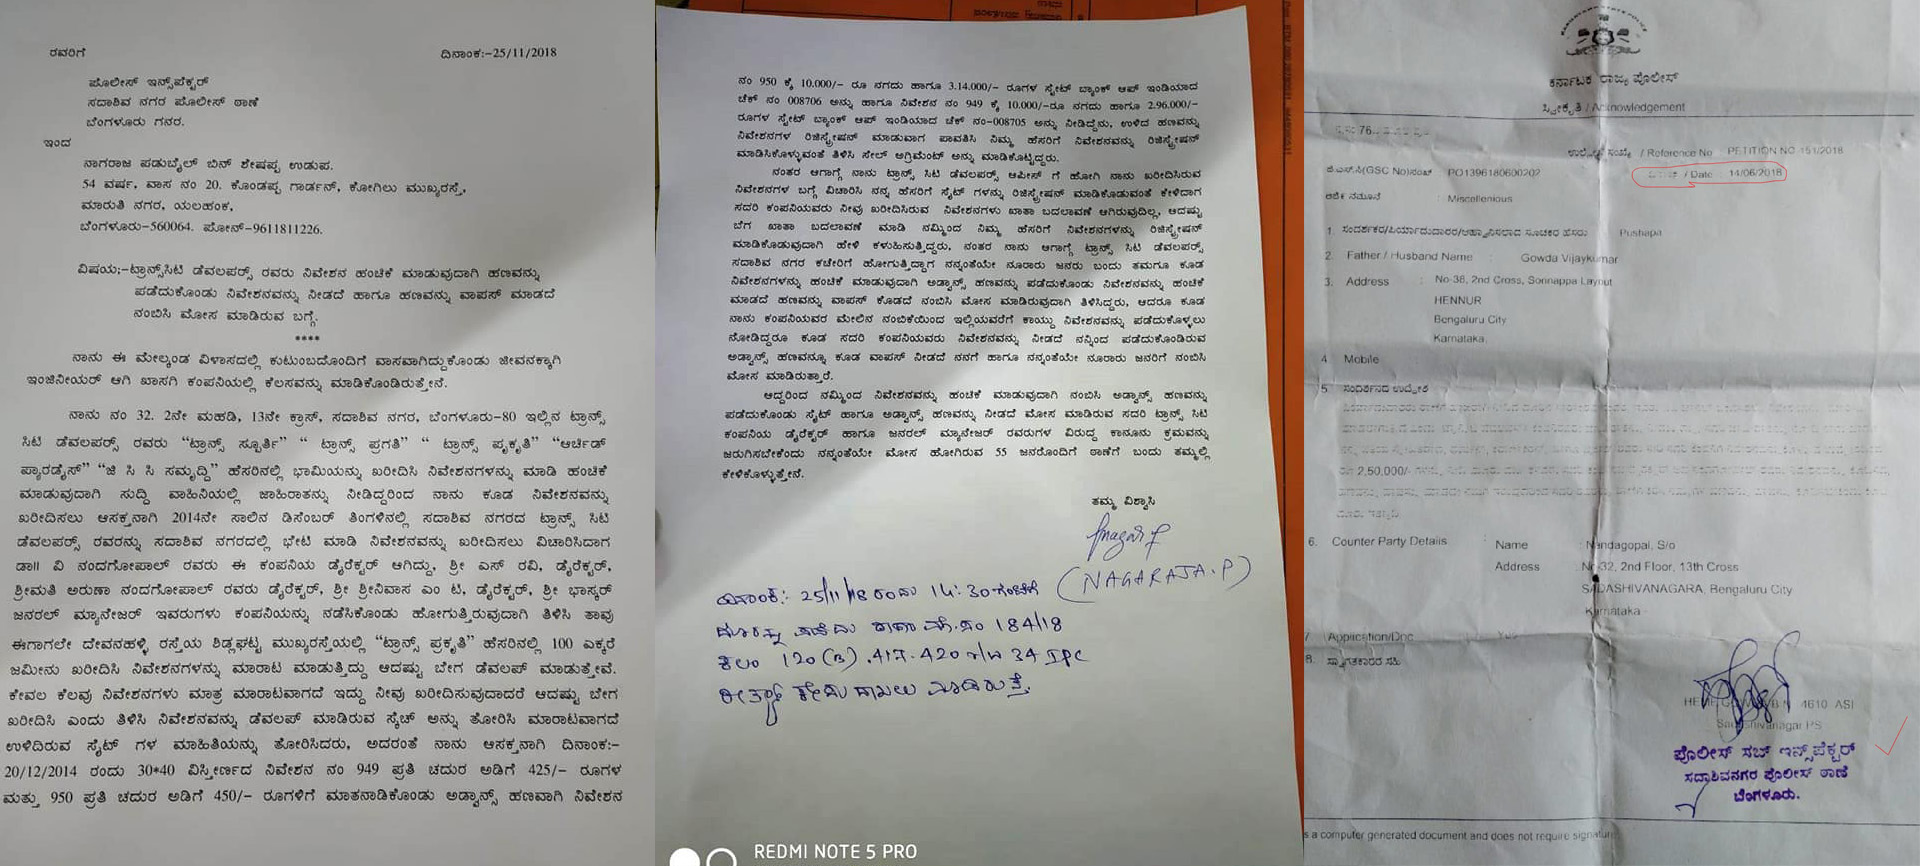 ರವರಿಗೆ
ದಿನಾಂಕ:-25/11/2018
ಪೊಲೀಸ್ ಇನ್ಸ್‌ಪೆಕ್ಟರ್
ಸದಾಶಿವ ನಗರ ಪೊಲೀಸ್ ಠಾಣೆ
ಬೆಂಗಳೂರು ಗನರ.
ಇಂದ
ನಾಗರಾಜ ಪಡುಬೈಲ್ ಬಿನ್ ಶೇಷಪ್ಪ ಉಡುಪ.
54 ವರ್ಷ, ವಾಸ ನಂ 20. ಕೊಂಡಪ್ಪ ಗಾರ್ಡನ್, ಕೋಗಿಲು ಮುಖ್ಯರಸ್ತೆ,
ಮಾರುತಿ ನಗರ, ಯಲಹಂಕ,
ಬೆಂಗಳೂರು-560064. ಪೋನ್-9611811226.
ವಿಷಯ;-ಟ್ರಾನ್ಸ್‌ಸಿಟಿ ಡೆವಲಪರ್ಸ್ ರವರು ನಿವೇಶನ ಹಂಚಿಕೆ ಮಾಡುವುದಾಗಿ ಹಣವನ್ನು
ಪಡೆದುಕೊಂಡು ನಿವೇಶನವನ್ನು ನೀಡದೆ ಹಾಗೂ ಹಣವನ್ನು ವಾಪಸ್ ಮಾಡದೆ
ನಂಬಿಸಿ ಮೋಸ ಮಾಡಿರುವ ಬಗ್ಗೆ.
****
ನಾನು ಈ ಮೇಲ್ಕಂಡ ವಿಳಾಸದಲ್ಲಿ ಕುಟುಂಬದೊಂದಿಗೆ ವಾಸವಾಗಿದ್ದುಕೊಂಡು ಜೀವನಕ್ಕಾಗಿ
ಇಂಜಿನೀಯರ್ ಆಗಿ ಖಾಸಗಿ ಕಂಪನಿಯಲ್ಲಿ ಕೆಲಸವನ್ನು ಮಾಡಿಕೊಂಡಿರುತ್ತೇನೆ.
ನಾನು ನಂ 32. 2ನೇ ಮಹಡಿ, 13ನೇ ಕ್ರಾಸ್, ಸದಾಶಿವ ನಗರ, ಬೆಂಗಳೂರು-80 ಇಲ್ಲಿನ ಟ್ರಾನ್ಸ್
ಸಿಟಿ ಡೆವಲಪರ್ಸ್ ರವರು “ಟ್ರಾನ್ಸ್ ಸ್ಪೂರ್ತಿ” “ ಟ್ರಾನ್ಸ್ ಪ್ರಗತಿ” “ ಟ್ರಾನ್ಸ್ ಪ್ರಕೃತಿ” “ಆರ್ಚಿಡ್
ಪ್ಯಾರಡೈಸ್” “ಜಿ ಸಿ ಸಿ ಸಮೃದ್ದಿ” ಹೆಸರಿನಲ್ಲಿ ಭಾಮಿಯನ್ನು ಖರೀದಿಸಿ ನಿವೇಶನಗಳನ್ನು ಮಾಡಿ ಹಂಚಿಕೆ
ಮಾಡುವುದಾಗಿ ಸುದ್ದಿ ವಾಹಿನಿಯಲ್ಲಿ ಜಾಹಿರಾತನ್ನು ನೀಡಿದ್ದರಿಂದ ನಾನು ಕೂಡ ನಿವೇಶನವನ್ನು
ಖರೀದಿಸಲು ಆಸಕ್ತನಾಗಿ 2014ನೇ ಸಾಲಿನ ಡಿಸೆಂಬರ್ ತಿಂಗಳಿನಲ್ಲಿ ಸದಾಶಿವ ನಗರದ ಟ್ರಾನ್ಸ್ ಸಿಟಿ
ಡೆವಲಪರ್ಸ್ ರವರನ್ನು ಸದಾಶಿವ ನಗರದಲ್ಲಿ ಭೇಟಿ ಮಾಡಿ ನಿವೇಶನವನ್ನು ಖರೀದಿಸಲು ವಿಚಾರಿಸಿದಾಗ
ಡಾ|| ವಿ ನಂದಗೋಪಾಲ್ ರವರು ಈ ಕಂಪನಿಯ ಡೈರೆಕ್ಟರ್ ಆಗಿದ್ದು, ಶ್ರೀ ಎಸ್ ರವಿ, ಡೈರೆಕ್ಟರ್,
ಶ್ರೀಮತಿ ಅರುಣಾ ನಂದಗೋಪಾಲ್ ರವರು ಡೈರೆಕ್ಟರ್, ಶ್ರೀ ಶ್ರೀನಿವಾಸ ಎಂ ಟಿ, ಡೈರೆಕ್ಟರ್, ಶ್ರೀ ಭಾಸ್ಕರ್
ಜನರಲ್ ಮ್ಯಾನೇಜರ್ ಇವರುಗಳು ಕಂಪನಿಯನ್ನು ನಡೆಸಿಕೊಂಡು ಹೋಗುತ್ತಿರುವುದಾಗಿ ತಿಳಿಸಿ ತಾವು
ಈಗಾಗಲೇ ದೇವನಹಳ್ಳಿ ರಸ್ತೆಯ ಶಿಡ್ಲಘಟ್ಟ ಮುಖ್ಯರಸ್ತೆಯಲ್ಲಿ “ಟ್ರಾನ್ಸ್ ಪ್ರಕೃತಿ” ಹೆಸರಿನಲ್ಲಿ 100 ಎಕ್ಕರೆ
ಜಮೀನು ಖರೀದಿಸಿ ನಿವೇಶನಗಳನ್ನು ಮಾರಾಟ ಮಾಡುತ್ತಿದ್ದು ಆದಷ್ಟು ಬೇಗ ಡೆವಲಪ್ ಮಾಡುತ್ತೇವೆ.
ಕೇವಲ ಕೆಲವು ನಿವೇಶನಗಳು ಮಾತ್ರ ಮಾರಾಟವಾಗದೆ ಇದ್ದು ನೀವು ಖರೀದಿಸುವುದಾದರೆ ಆದಷ್ಟು ಬೇಗ
ಖರೀದಿಸಿ ಎಂದು ತಿಳಿಸಿ ನಿವೇಶನವನ್ನು ಡೆವಲಪ್ ಮಾಡಿರುವ ಸ್ಕೆಚ್ ಅನ್ನು ತೋರಿಸಿ ಮಾರಾಟವಾಗದೆ
ಉಳಿದಿರುವ ಸೈಟ್ ಗಳ ಮಾಹಿತಿಯನ್ನು ತೋರಿಸಿದರು, ಅದರಂತೆ ನಾನು ಆಸಕ್ತನಾಗಿ ದಿನಾಂಕ:-
20/12/2014 ರಂದು 30*40 ವಿಸ್ತೀರ್ಣದ ನಿವೇಶನ ನಂ 949 ಪ್ರತಿ ಚದುರ ಅಡಿಗೆ 425/- ರೂಗಳ
ಮತ್ತು 950 ಪ್ರತಿ ಚದುರ ಅಡಿಗೆ 450/- ರೂಗಳಿಗೆ ಮಾತನಾಡಿಕೊಂಡು ಅಡ್ವಾನ್ಸ್ ಹಣವಾಗಿ ನಿವೇಶನ
ನಂ 950 ಕ್ಕೆ 10.000/- ರೂ ನಗದು ಹಾಗೂ 3.14.000/- ರೂಗಳ ಸ್ಟೇಟ್ ಬ್ಯಾಂಕ್ ಆಪ್ ಇಂಡಿಯಾದ
ಚೆಕ್ ನಂ 008706 ಅನ್ನು ಹಾಗೂ ನಿವೇಶನ ನಂ 949 ಕ್ಕೆ 10.000/-ರೂ ನಗದು ಹಾಗೂ 2.96.000/-
ರೂಗಳ ಸ್ಟೇಟ್ ಬ್ಯಾಂಕ್ ಆಪ್ ಇಂಡಿಯಾದ ಚೆಕ್ ನಂ-008705 ಅನ್ನು ನೀಡಿದ್ದೆನು, ಉಳಿದ ಹಣವನ್ನು
ನಿವೇಶನಗಳ ರಿಜಿಸ್ಟ್ರೇಷನ್ ಮಾಡುವಾಗ ಪಾವತಿಸಿ ನಿಮ್ಮ ಹೆಸರಿಗೆ ನಿವೇಶನವನ್ನು ರಿಜಿಸ್ಟ್ರೇಷನ್
ಮಾಡಿಸಿಕೊಳ್ಳುವಂತೆ ತಿಳಿಸಿ ಸೇಲ್ ಅಗ್ರಿಮೆಂಟ್ ಅನ್ನು ಮಾಡಿಕೊಟ್ಟಿದ್ದರು.
ನಂತರ ಆಗಾಗ್ಗೆ ನಾನು ಟ್ರಾನ್ಸ್ ಸಿಟಿ ಡೆವಲಪರ್ಸ್ ಆಪೀಸ್ ಗೆ ಹೋಗಿ ನಾನು ಖರೀದಿಸಿರುವ
ನಿವೇಶನಗಳ ಬಗ್ಗೆ ವಿಚಾರಿಸಿ ನನ್ನ ಹೆಸರಿಗೆ ಸೈಟ್ ಗಳನ್ನು ರಿಜಿಸ್ಟ್ರೇಷನ್ ಮಾಡಿಕೊಡುವಂತೆ ಕೇಳಿದಾಗ
ಸದರಿ ಕಂಪನಿಯವರು ನೀವು ಖರೀದಿಸಿರುವ ನಿವೇಶನಗಳು ಖಾತಾ ಬದಲಾವಣೆ ಆಗಿರುವುದಿಲ್ಲ, ಆದಷ್ಟು
ಬೆಗ ಖಾತಾ ಬದಲಾವಣೆ ಮಾಡಿ ನಮ್ಮಿಂದ ನಿಮ್ಮ ಹೆಸರಿಗೆ ನಿವೇಶನಗಳನ್ನು ರಿಜಿಸ್ಟ್ರೇಷನ್
ಮಾಡಿಕೊಡುವುದಾಗಿ ಹೇಳಿ ಕಳುಹಿಸುತ್ತಿದ್ದರು, ನಂತರ ನಾನು ಆಗಾಗ್ಗೆ ಟ್ರಾನ್ಸ್ ಸಿಟಿ ಡೆವಲಪರ್ಸ್
ಸದಾಶಿವ ನಗರ ಕಚೇರಿಗೆ ಹೋಗುತ್ತಿದ್ದಾಗ ನನ್ನಂತೆಯೇ ನೂರಾರು ಜನರು ಬಂದು ತಮಗೂ ಕೂಡ
ನಿವೇಶನಗಳನ್ನು ಹಂಚಿಕೆ ಮಾಡುವುದಾಗಿ ಅಡ್ವಾನ್ಸ್ ಹಣವನ್ನು ಪಡೆದುಕೊಂಡು ನಿವೇಶನವನ್ನು ಹಂಚಿಕೆ
ಮಾಡದೆ ಹಣವನ್ನು ವಾಪಸ್ ಕೊಡದೆ ನಂಬಿಸಿ ಮೋಸ ಮಾಡಿರುವುದಾಗಿ ತಿಳಿಸಿದ್ದರು, ಆದರೂ ಕೂಡ
ನಾನು ಕಂಪನಿಯವರ ಮೇಲಿನ ನಂಬಿಕೆಯಿಂದ ಇಲ್ಲಿಯವರೆಗೆ ಕಾಯ್ದು ನಿವೇಶನವನ್ನು ಪಡೆದುಕೊಳ್ಳಲು
ನೋಡಿದ್ದರೂ ಕೂಡ ಸದರಿ ಕಂಪನಿಯವರು ನಿವೇಶನವನ್ನು ನೀಡದೆ ನನ್ನಿಂದ ಪಡೆದುಕೊಂಡಿರುವ
ಅಡ್ವಾನ್ಸ್ ಹಣವನ್ನೂ ಕೂಡ ವಾಪಸ್ ನೀಡದೆ ನನಗೆ ಹಾಗೂ ನನ್ನಂತೆಯೇ ನೂರಾರು ಜನರಿಗೆ ನಂಬಿಸಿ
ಮೋಸ ಮಾಡಿರುತ್ತಾರೆ.
ಆದ್ದರಿಂದ ನಮ್ಮಿಂದ ನಿವೇಶನವನ್ನು ಹಂಚಿಕೆ ಮಾಡುವುದಾಗಿ ನಂಬಿಸಿ ಅಡ್ವಾನ್ಸ್ ಹಣವನ್ನು
ಪಡೆದುಕೊಂಡು ಸೈಟ್ ಹಾಗೂ ಅಡ್ವಾನ್ಸ್ ಹಣವನ್ನು ನೀಡದೆ ಮೋಸ ಮಾಡಿರುವ ಸದರಿ ಟ್ರಾನ್ಸ್ ಸಿಟಿ
ಕಂಪನಿಯ ಡೈರೆಕ್ಟರ್ ಹಾಗೂ ಜನರಲ್ ಮ್ಯಾನೇಜರ್ ರವರುಗಳ ವಿರುದ್ದ ಕಾನೂನು ಕ್ರಮವನ್ನು
ಜರುಗಿಸಬೇಕೆಂದು ನನ್ನಂತೆಯೇ ಮೋಸ ಹೋಗಿರುವ 55 ಜನರೊಂದಿಗೆ ಠಾಣೆಗೆ ಬಂದು ತಮ್ಮಲ್ಲಿ
ಕೇಳಿಕೊಳ್ಳುತ್ತೇನೆ.
ತಮ್ಮ ವಿಶ್ವಾಸಿ
(NAGARAJA.P)
ದಿನಾಂಕ: 25/11/18 ರಂದು 14:30 ಗಂಟೆಗೆ
ದೂರನ್ನು ಪಡೆದು ಠಾಣಾ ಮೊ.ಸಂ 184/18
ಕಲಂ 120(B).417.420 r/w 34 IPC
ರೀತ್ಯಾ ಕೇಸು ದಾಖಲು ಮಾಡಿರುತ್ತೆ.
REDMI NOTE 5 PRO
ಕರ್ನಾಟಕ ರಾಜ್ಯ ಪೊಲೀಸ್
ಸ್ವೀಕೃತಿ / Acknowledgement
ಉಲ್ಲೇಖ ಸಂಖ್ಯೆ / Reference No PETITION NO 151/2018
ಜಿ.ಎಸ್.ಸಿ(GSC No)ಸಂಖ್ಯೆ PO1396180600202
/ Date 14/06/2018
ಅರ್ಜಿ ನಮೂನೆ : Miscellenious
1. ಸಂದರ್ಶಕರ/ಪಿರ್ಯಾದುದಾರರ/ಆಹ್ವಾನಿಸಲಾದ ಸೂಚಕರ ಹೆಸರು : Pushapa
2. Father / Husband Name : Gowda Vijaykumar
3. Address : No-36, 2nd Cross, Sonnappa Layout
HENNUR
Bengaluru City
Karnataka
4 Mobile
5. ಸಂದರ್ಶನದ ಉದ್ದೇಶ
ರೂ 2,50,000/-
6. Counter Party Details : Name : Nandagopal, S/o
Address : No-32, 2nd Floor, 13th Cross
SADASHIVANAGARA, Bengaluru City
Karnataka
7 Application/Doc
8. ಸ್ವಾಗತಕಾರರ ಸಹಿ
4610 ASI
Sadashivanagar PS
ಪೊಲೀಸ್ ಸಬ್ ಇನ್ಸ್‌ಪೆಕ್ಟರ್
ಸದಾಶಿವನಗರ ಪೊಲೀಸ್ ಠಾಣೆ
ಬೆಂಗಳೂರು.
s a computer generated document and does not require signature